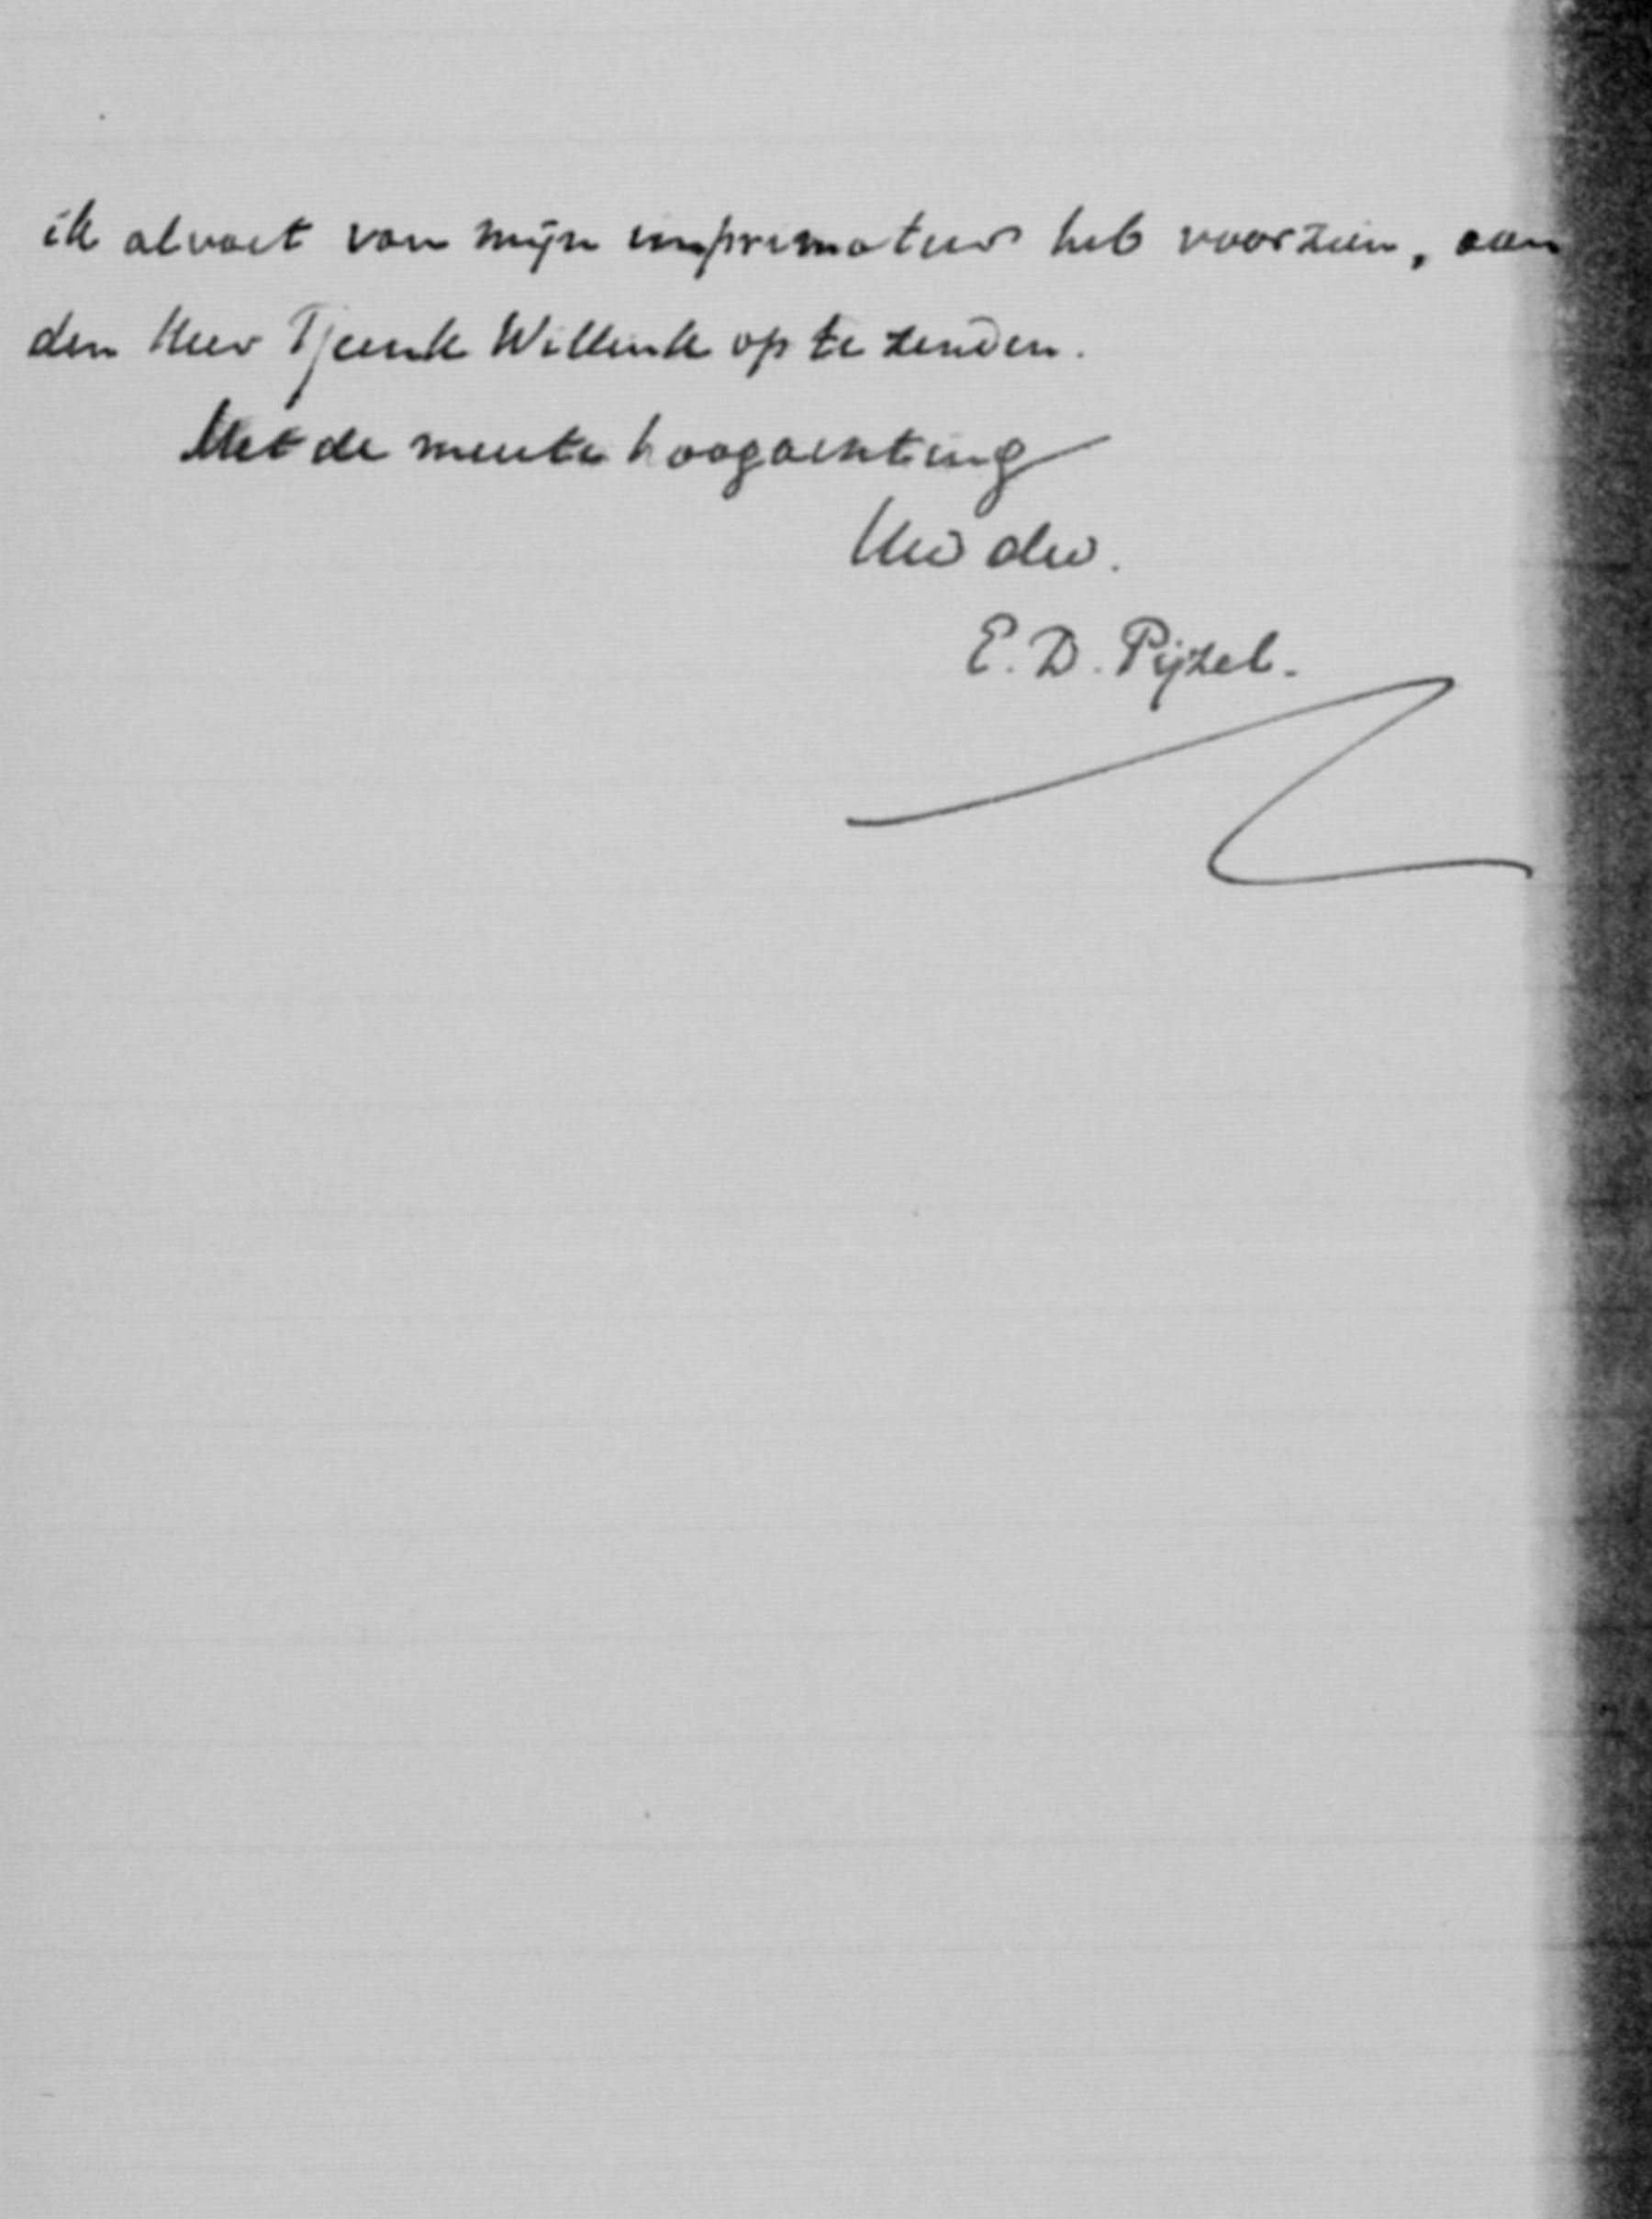 ik alvast van mijn imprimatur heb voorzien, aan
den Heer Tjeenk Willink op te zenden.
Met de meeste hoogachting
Uw dw.
E. D. Pijzel.